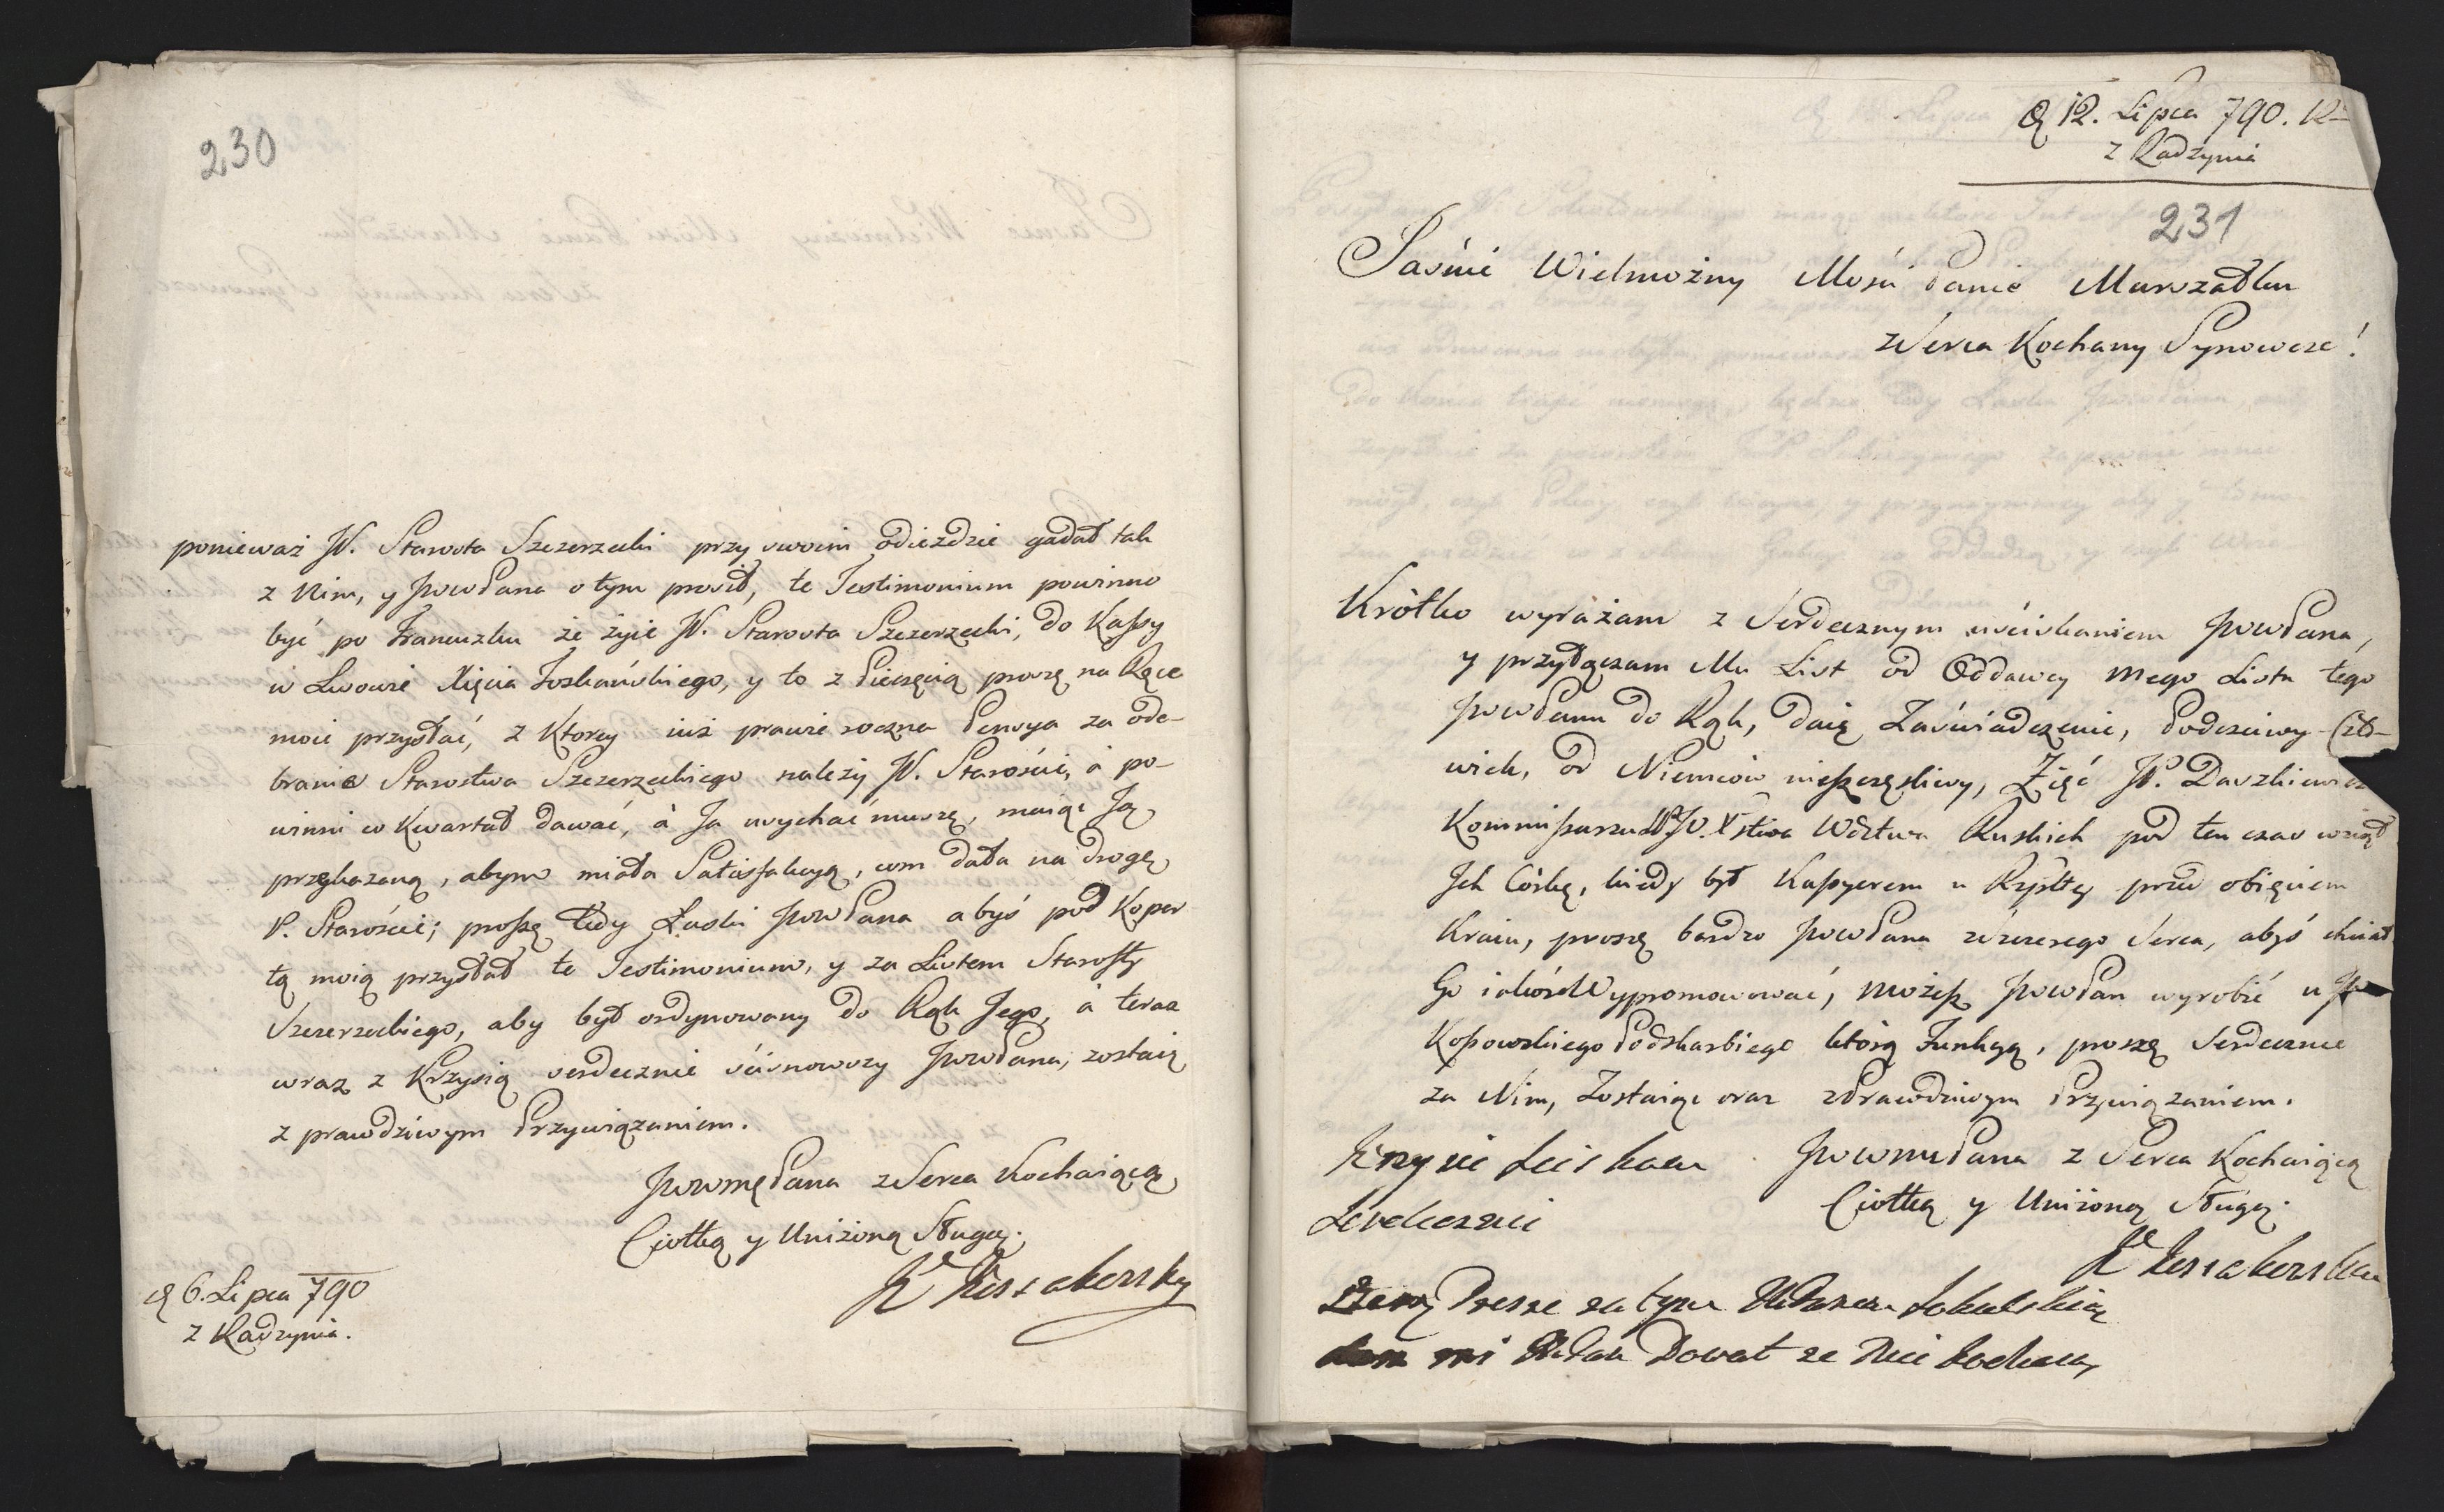 230
ponieważ JW. Starosta Szczerzecki przy swoim odieździe gadał tak
z Nim, y JwwPana o tym prosił, te Testimonium powinno
być po Francuzku że żyie JW. Starosta Szczerzecki, do Kassy
w Lwowie Xięcia Toskańskiego, y to z Pieczęcią proszę na Ręce
moie przysłać, z Ktorey iuż prawie roczna Pensya za ode-
branie Starostwa Szczerzeckiego należy JW. Starości, à po-
winni w Kwartał dawać, à Ja wychać muszę, maiąc Ją
przekazaną, abym miała Satisfakcyą, com dała na drogę
P. Starości; proszę tedy Łaski JwwPana abyś pod Koper
tą moią przysłał te Testimonium, y za Listem Starosty
Szczerzeckiego, aby był ordynowany do Rąk Jego, à teraz
wraz z Krzysią serdecznie ścisnowszy JwwPana, zostaię
z prawdziwym Przywiązaniem.
JwwmęPana z Serca Kochaiącą
Ciotką y Uniżoną Sługą.
K Kossakowska
d 6. Lipca 790
z Radzynia.
d 12. Lipca 790. R
z Radzynia
231
Jaśnie Wielmożny Mości Panie Marszałku
z Serca Kochany Synowcze!
Krótko wyrażam z Serdecznym uściskaniem JwwPana,
y przyłączam Mu List od Oddawcy mego Listu tego
JwwPanu do Rąk, daię Zaświadczenie, Podściwy Czło-
wiek, od Niemców nieszczęśliwy, Zięć JP. Daszkiewicza
Kommissarza JW. Xstwa Wdztwa Ruskich pod ten czas wziął
Jch Córkę, kiedy był Kassyerem u Rzpltey przed obięciem
Kraiu, proszę bardzo JwwPana szczerego Serca, abyś chciał
Go iakóś Wypromowować, możesz JwwPan wyrobić u
Kossowskiego Podskarbiego którą Funkcyą, proszę Serdecznie
za Nim, Zostaiąc oraz zPrawdziwym Przywiązaniem.
JwwmuPana z Serca Kochaiącą
Ciotką y Uniżoną Sługą.
K Kossakowska
Krzysie sciskam
Serdecznie
Prosze za tym
mi Dował ze Nie kocham